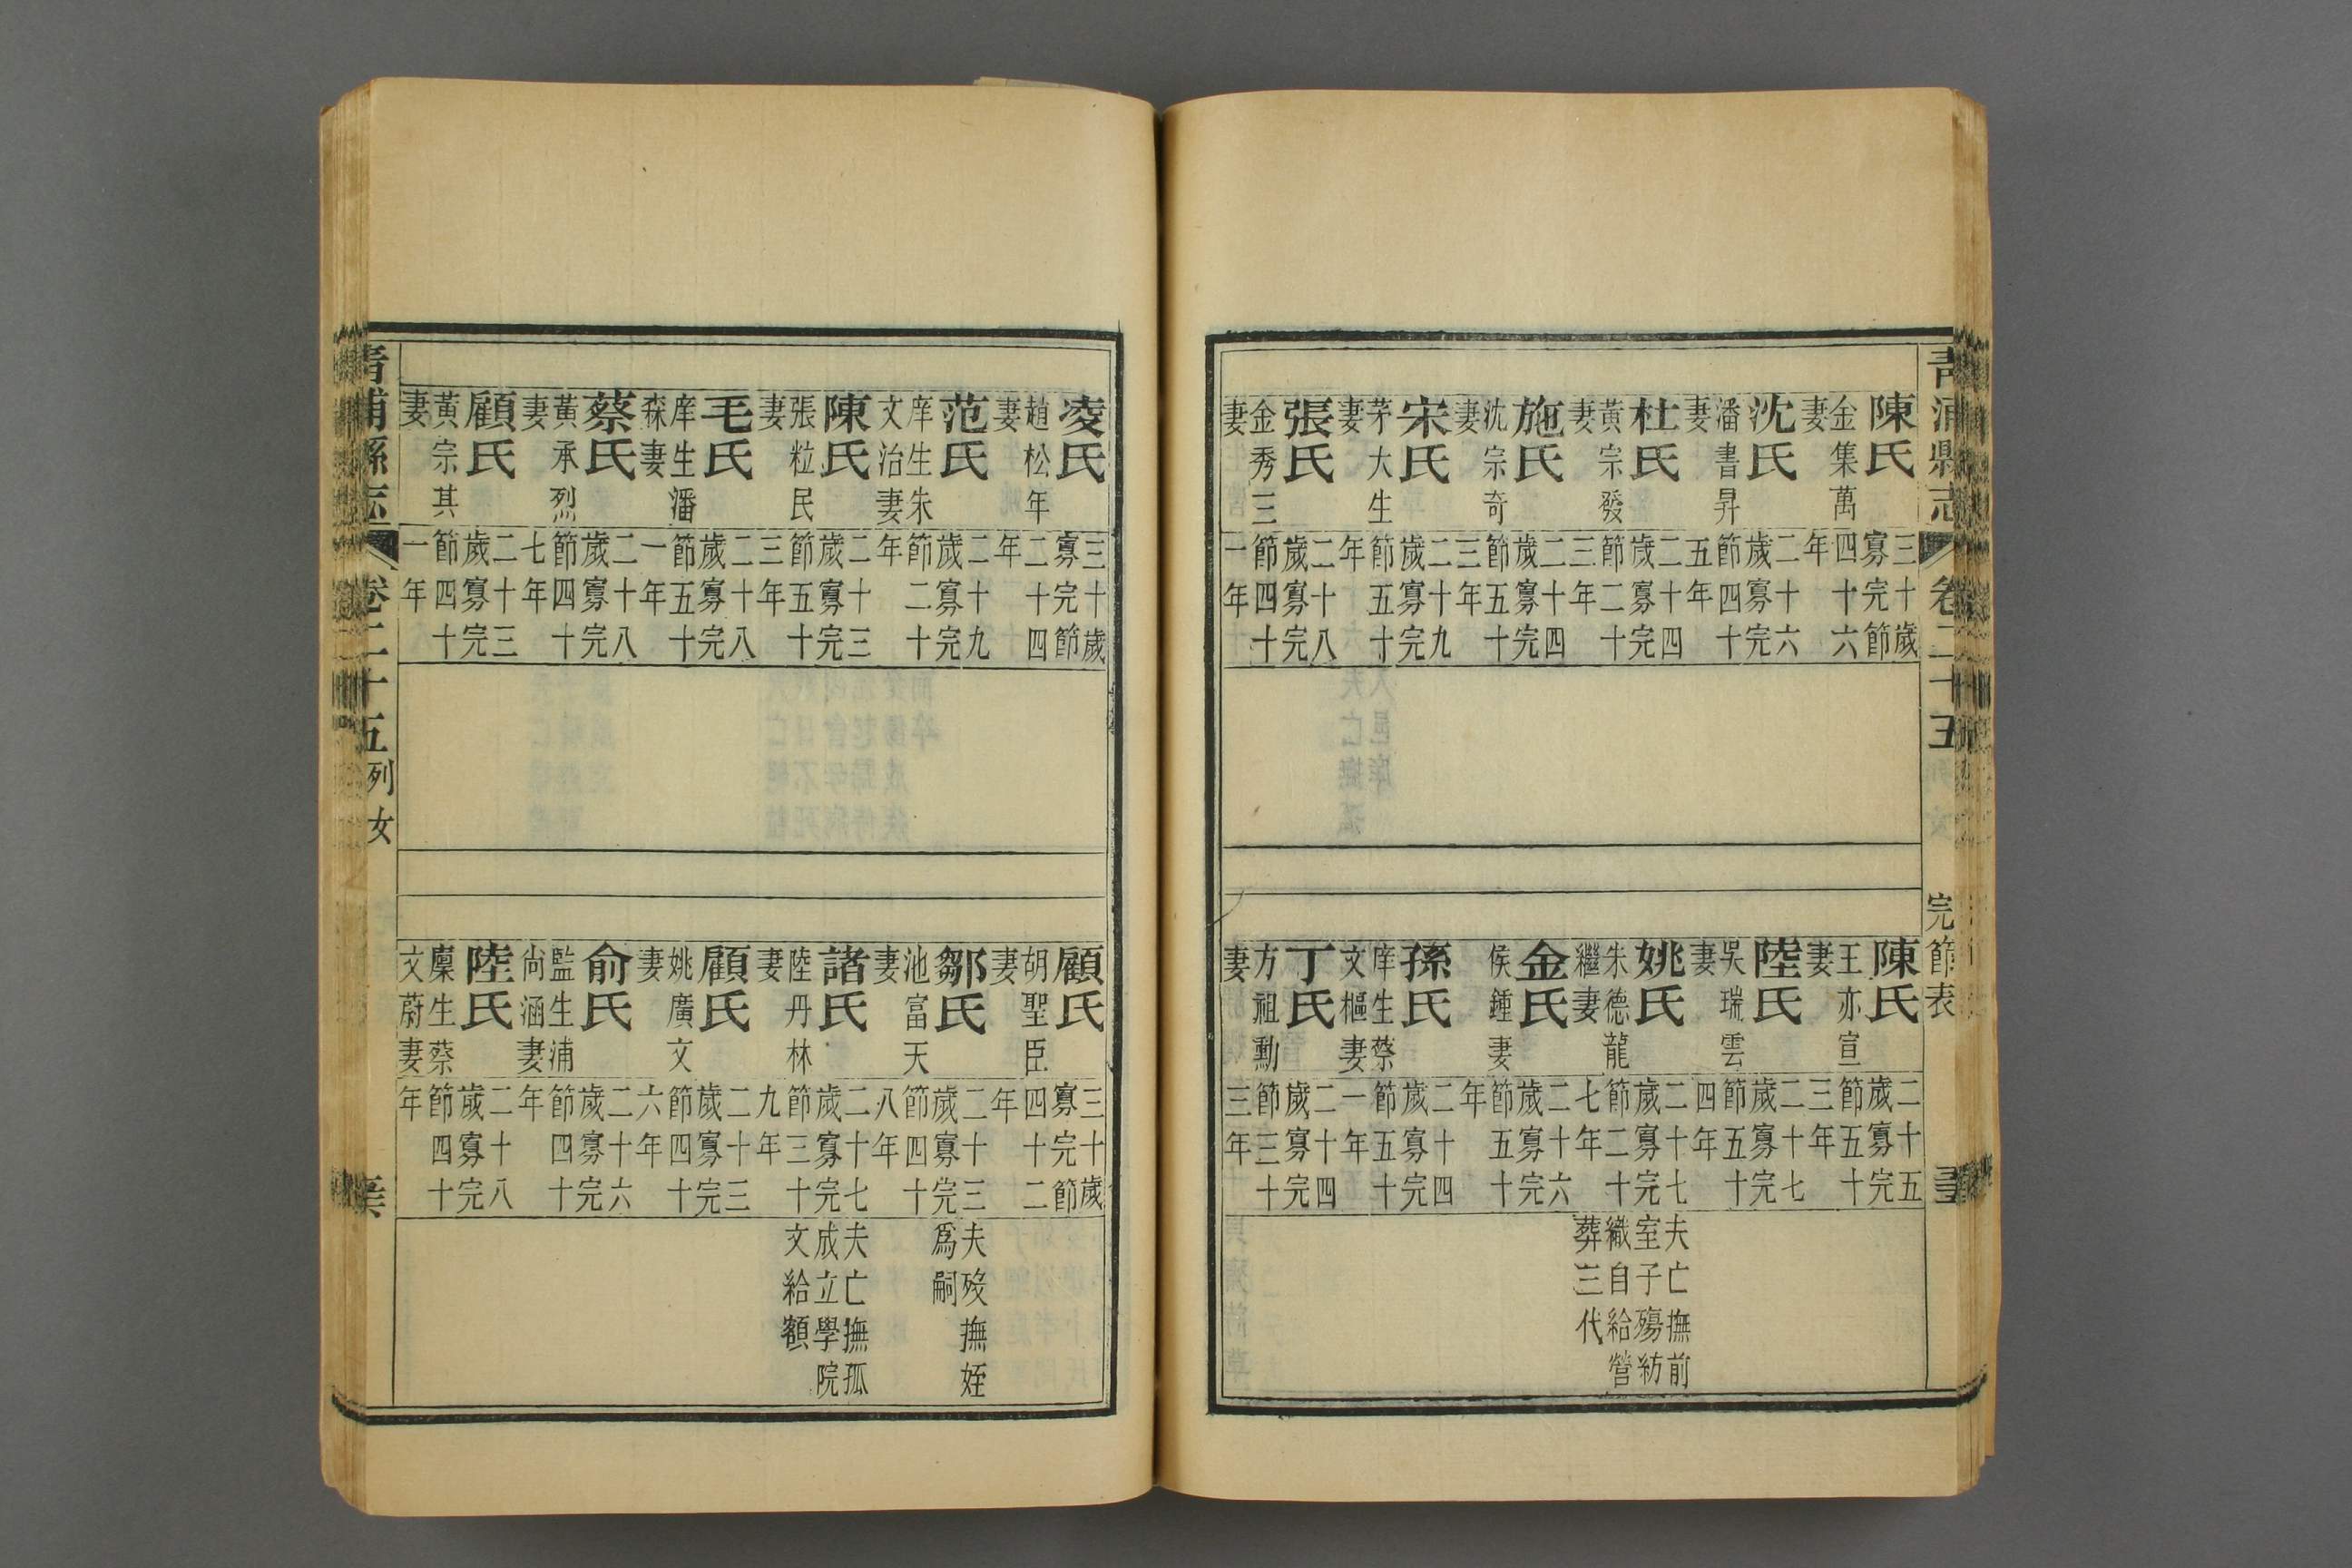 青浦縣志
卷二十五
完節表
陳氏
金集萬
妻
三十歲
寡完節
四十六
年
沈氏
潘書昇
妻
二十六
歲寡完
節四十
五年
杜氏
黃宗發
妻
二十四
歲寡完
節二十
三年
施氏
沈宗奇
妻
二十四
歲寡完
節五十
三年
宋氏
茅大生
妻
二十九
歲寡完
節五十
年
張氏
金秀三
妻
二十八
歲寡完
節四十
一年
陳氏
王亦宣
妻
二十五
歲寡完
節五十
三年
陸氏
吳瑞雲
妻
二十七
歲寡完
節五十
四年
姚氏
朱德龍
繼妻
二十七
歲寡完
節二十
七年
夫亡撫前
室子殤紡
織自給營
葬三代
金氏
侯鍾妻
二十六
歲寡完
節五十
年
孫氏
庠生蔡
文樞妻
二十四
歲寡完
節五十
一年
丁氏
方祖勳
妻
二十四
歲寡完
節三十
三年
凌氏
趙松年
妻
三十歲
寡完節
二十四
年
范氏
庠生朱
文治妻
二十九
歲寡完
節二十
年
陳氏
張粒民
妻
二十三
歲寡完
節五十
三年
毛氏
庠生潘
森妻
二十八
歲寡完
節五十
一年
蔡氏
黃承烈
妻
二十八
歲寡完
節四十
七年
顧氏
黃宗其
妻
二十三
歲寡完
節四十
一年
顧氏
胡聖臣
妻
三十歲
寡完節
四十二
年
鄒氏
池富天
妻
二十三
歲寡完
節四十
八年
夫歿撫姪
爲嗣
諸氏
陸丹林
妻
二十七
歲寡完
節三十
九年
夫亡撫孤
成立學院
文給額
顧氏
姚廣文
妻
二十三
歲寡完
節四十
六年
俞氏
監生浦
尙涵妻
二十六
歲寡完
節四十
年
陸氏
廩生蔡
文蔚妻
二十八
歲寡完
節四十
年
青浦縣志
卷二十五
列女